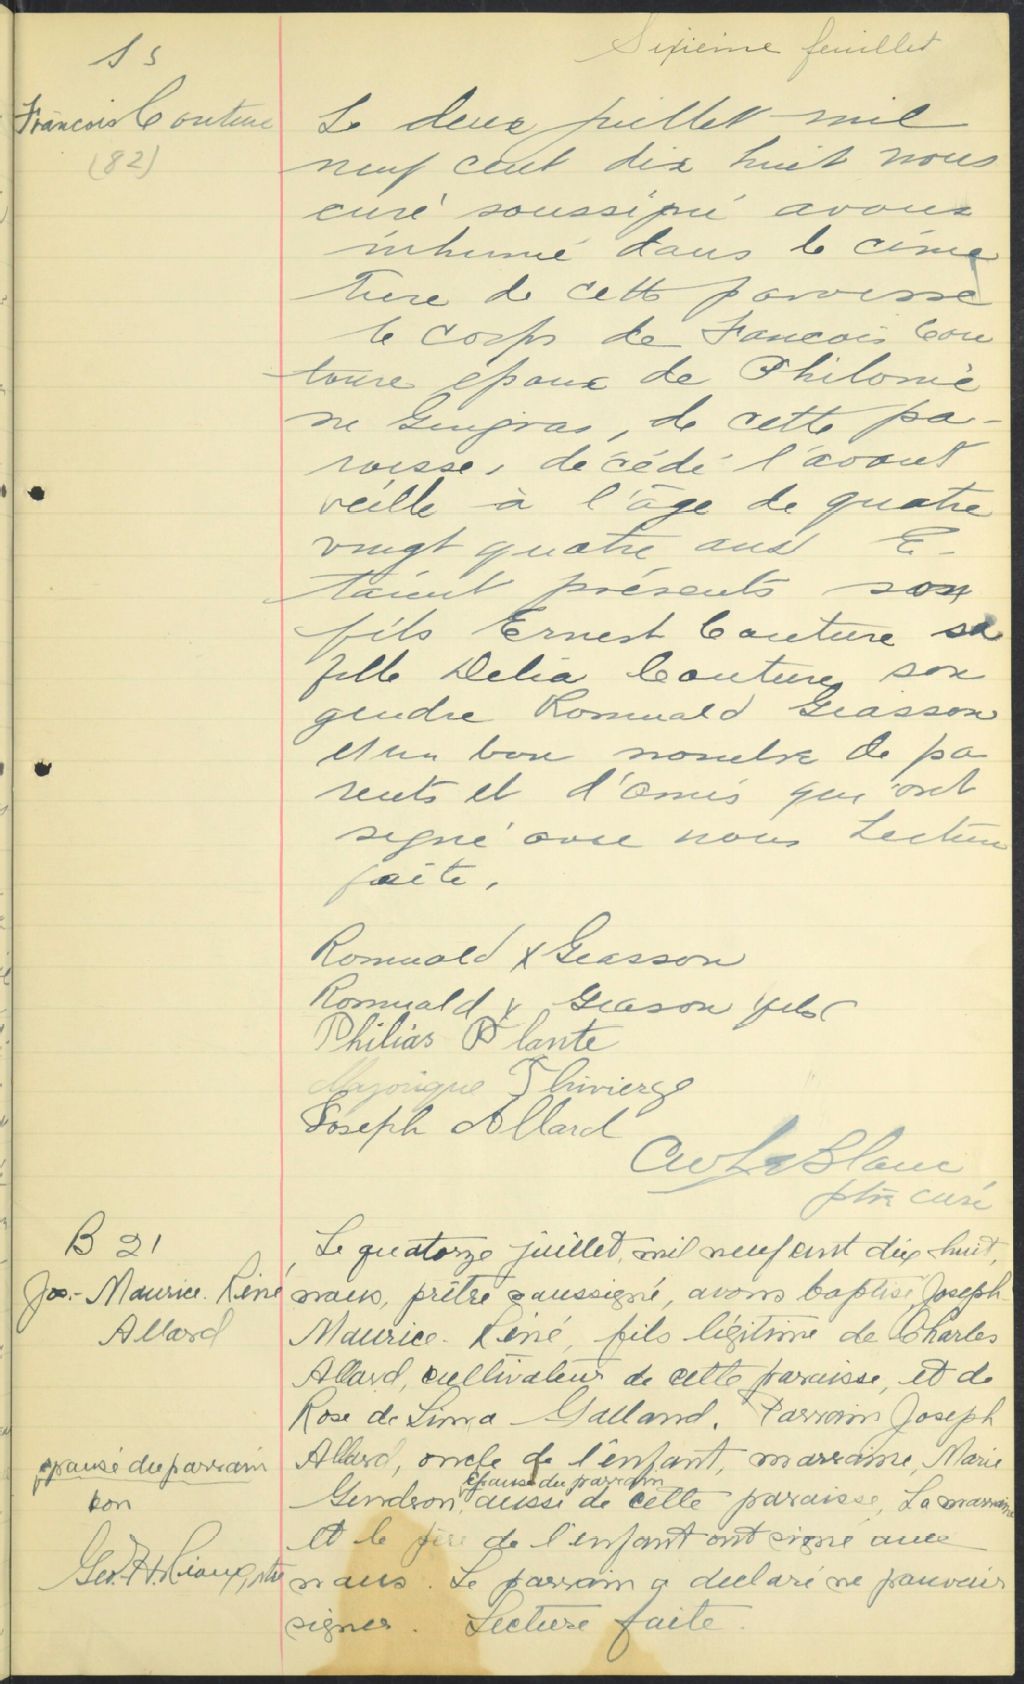 Sixième feuillet
S 5
François Couture
(82)
Le deux juillet mil
neuf cent dix huit nous
curé soussigné avons
inhumé dans le cime
tiere de cette paroisse
le corps de Francois Cou
ture epoux de Philomè
ne Gingras, de cette pa-
roisse, décédé l'avant
veille à l'âge de quatre
vingt quatre ans E-
taient présents son
fils Ernest Couture sa
fille Delia Couture, son
gendre Romuald Giasson
et un bon nombre de pa
rents et d'amis qui ont
signé avec nous Lecture
faite.
Romuald x Giasson
Romuald x Giason fils
Philias Plante
Majorique Thivierge
Joseph Allard
LeBlanc
ptre curé
B 21
Jos.- Maurice. Réné
Allard
Le quatorze juillet, mil neuf cent dix huit,
nous, prêtre soussigné, avons baptisé Joseph
Maurice. Réné, fils légitime de Charles
Allard, cultivateur de cette paroisse, et de
Rose de Lima Galland. Parrain Joseph
Allard, oncle de l'enfant, marraine, Marie
épouse du parrain
Gendron, aussi de cette paroisse, La marraine
et le père de l'enfant ont signé avec
nous. Le parrain a declaré ne pouvoir
signer. Lecture faite.
épouse du parrain
bon
Geo. ptre